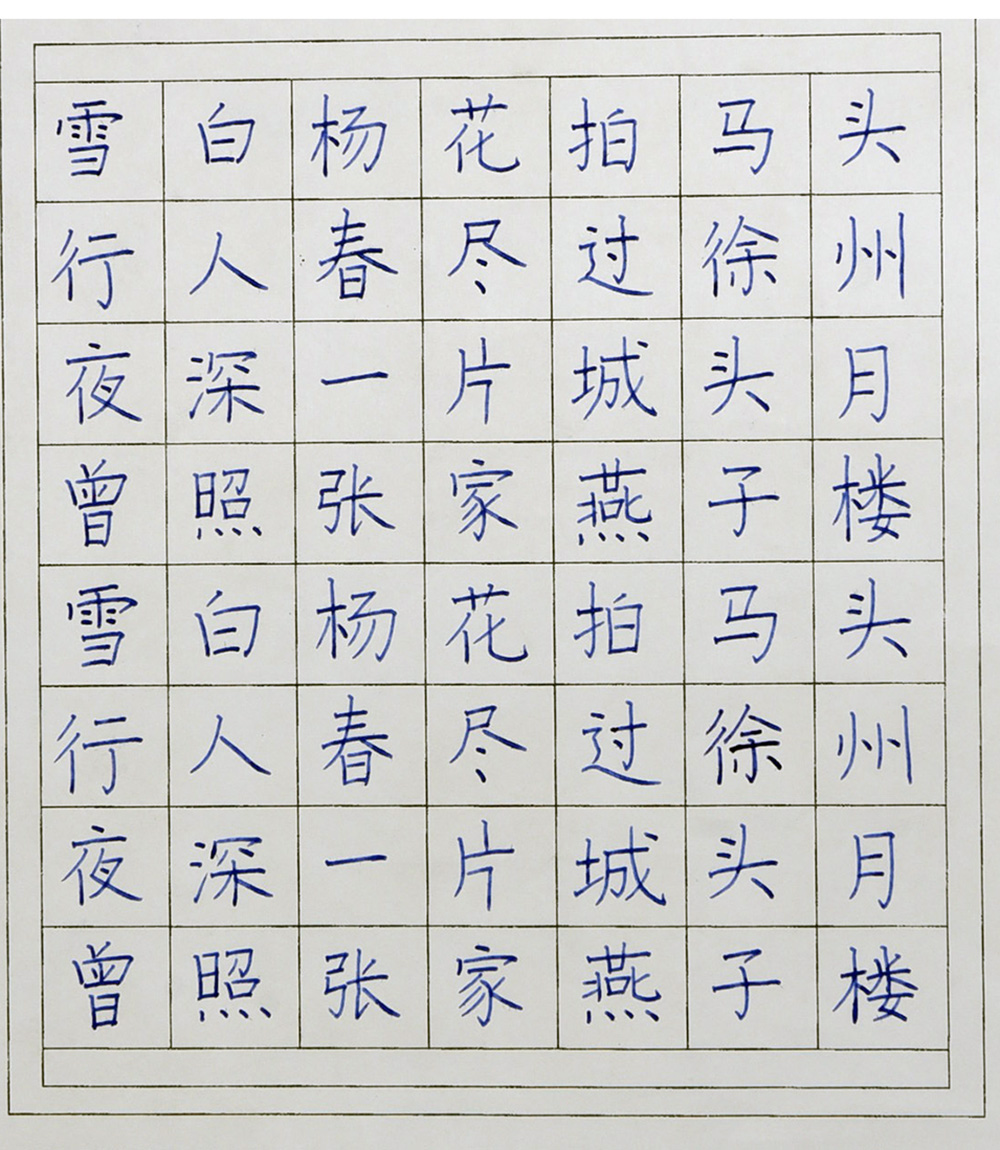 雪白杨花拍马头
行人春尽过徐州
夜深一片城头月
曾照张家燕子楼
雪白杨花拍马头
行人春尽过徐州
夜深一片城头月
曾照张家燕子楼